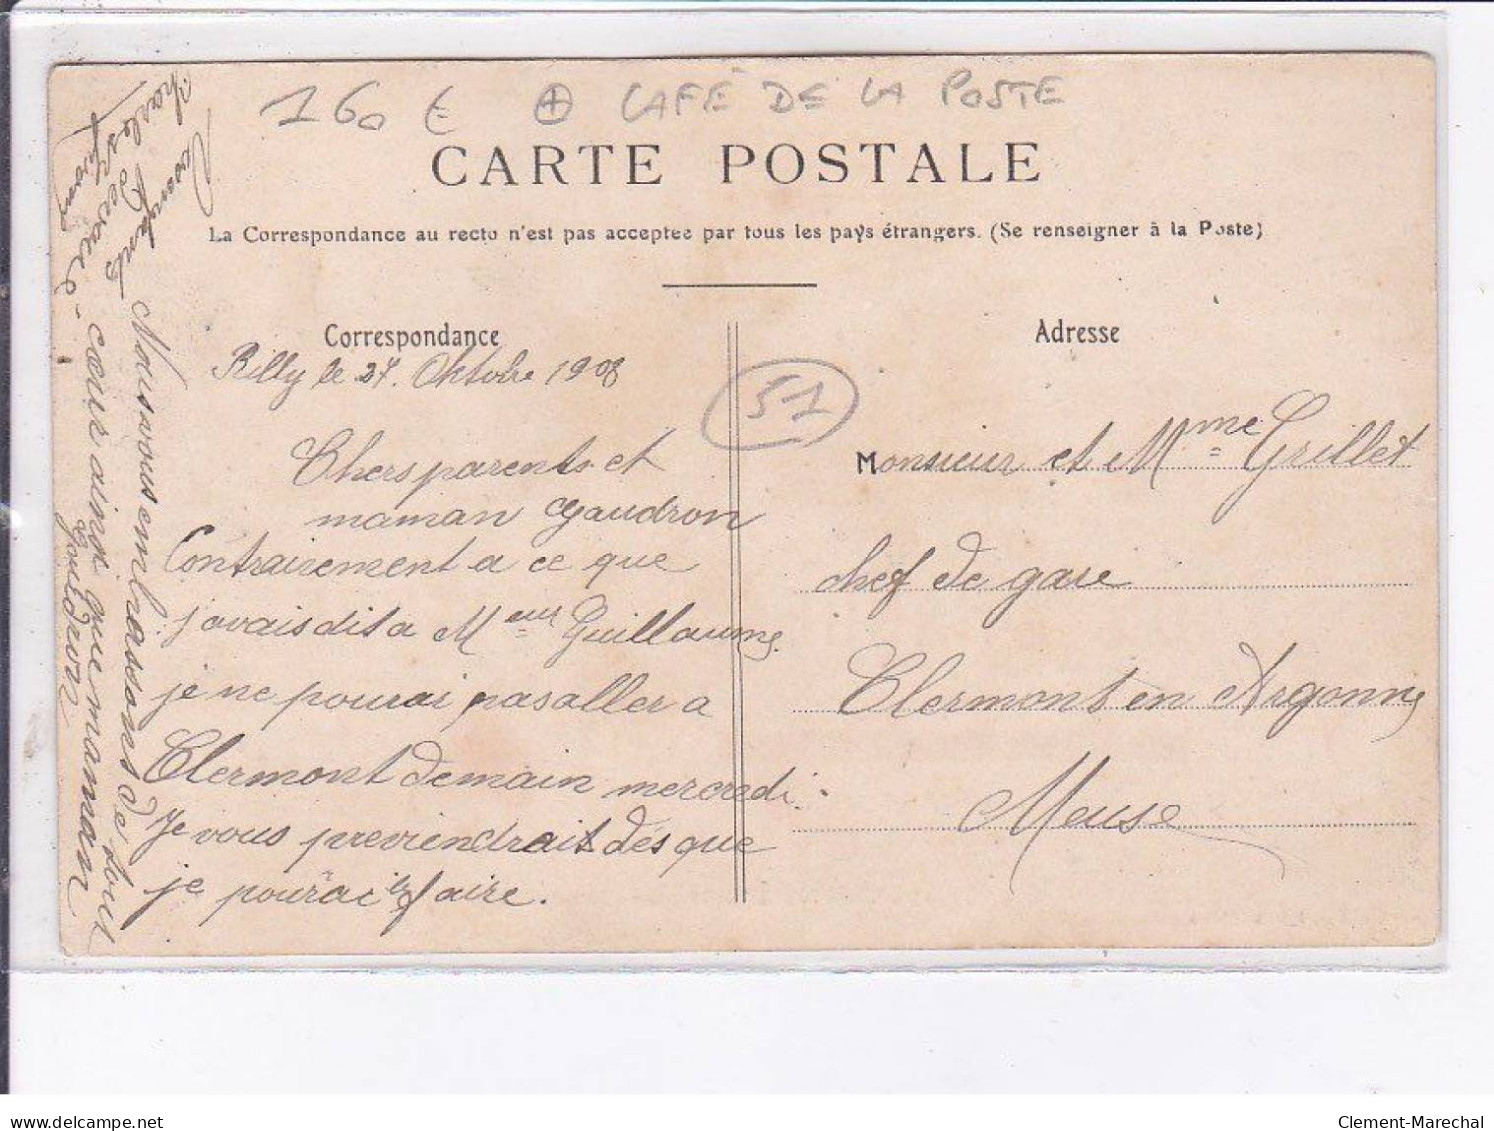 160 € ⊕ CAFÉ DE LA POSTE
CARTE POSTALE
La Correspondance au recto n'est pas acceptee par tous les pays étrangers. (Se renseigner à la Poste)
Correspondance
Rilly le 27. Octobre 1908
Chers parents et
maman Gaudron
Contrairement a ce que
j'avais dit a Meur Guillaume
je ne pourai pas aller a
Clermont demain mercredi.
Je vous previendrait dès que
je pourai le faire.
Nous vous embrassons de tout
cœur ainsi que maman
Gaudron
Vos enfants
Charles
51
Adresse
Monsieur et Mme Grillet
chef de gare
Clermont en Argonne
Meuse
delcampe.net
Clement-Marechal